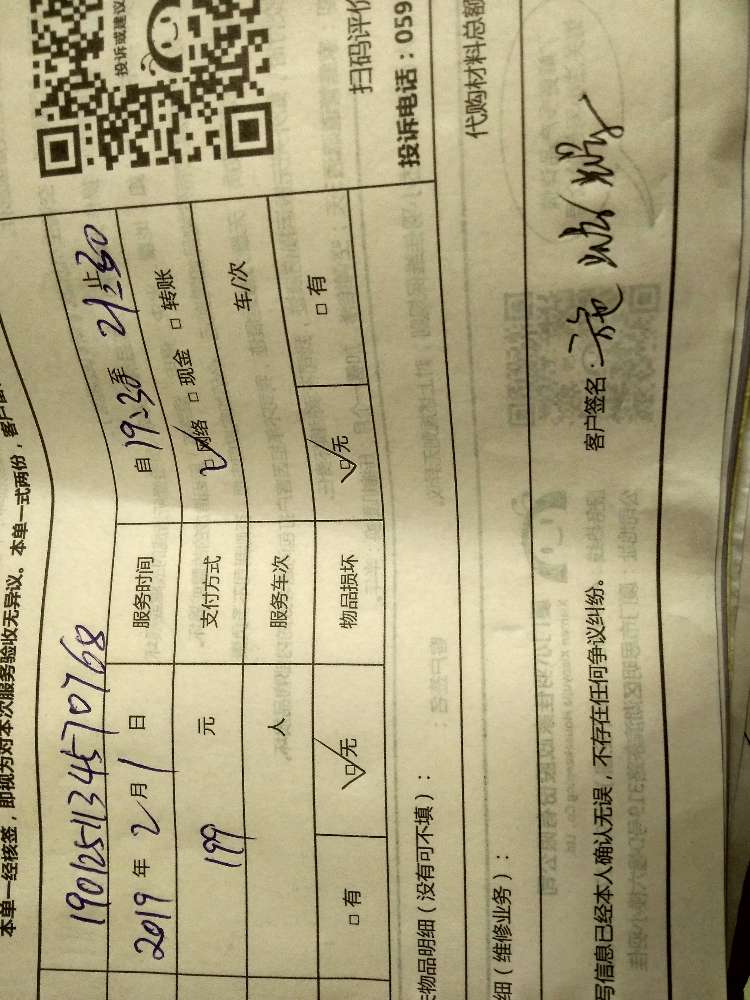 本单一经核签，即视为对本次服务验收无异议。本单一式两份，客户留
投诉或建议
1901251134570768
2019 年 2 月 1 日 服务时间 自 19:30 至 21:30 止
199 元 支付方式 网络 现金 转账
人 服务车次 车/次
有 无 物品损坏 无 有
扫码评价
投诉电话：059
物品明细（没有可不填）：
细（维修业务）： 代购材料总额
写信息已经本人确认无误，不存在任何争议纠纷。 客户签名：施